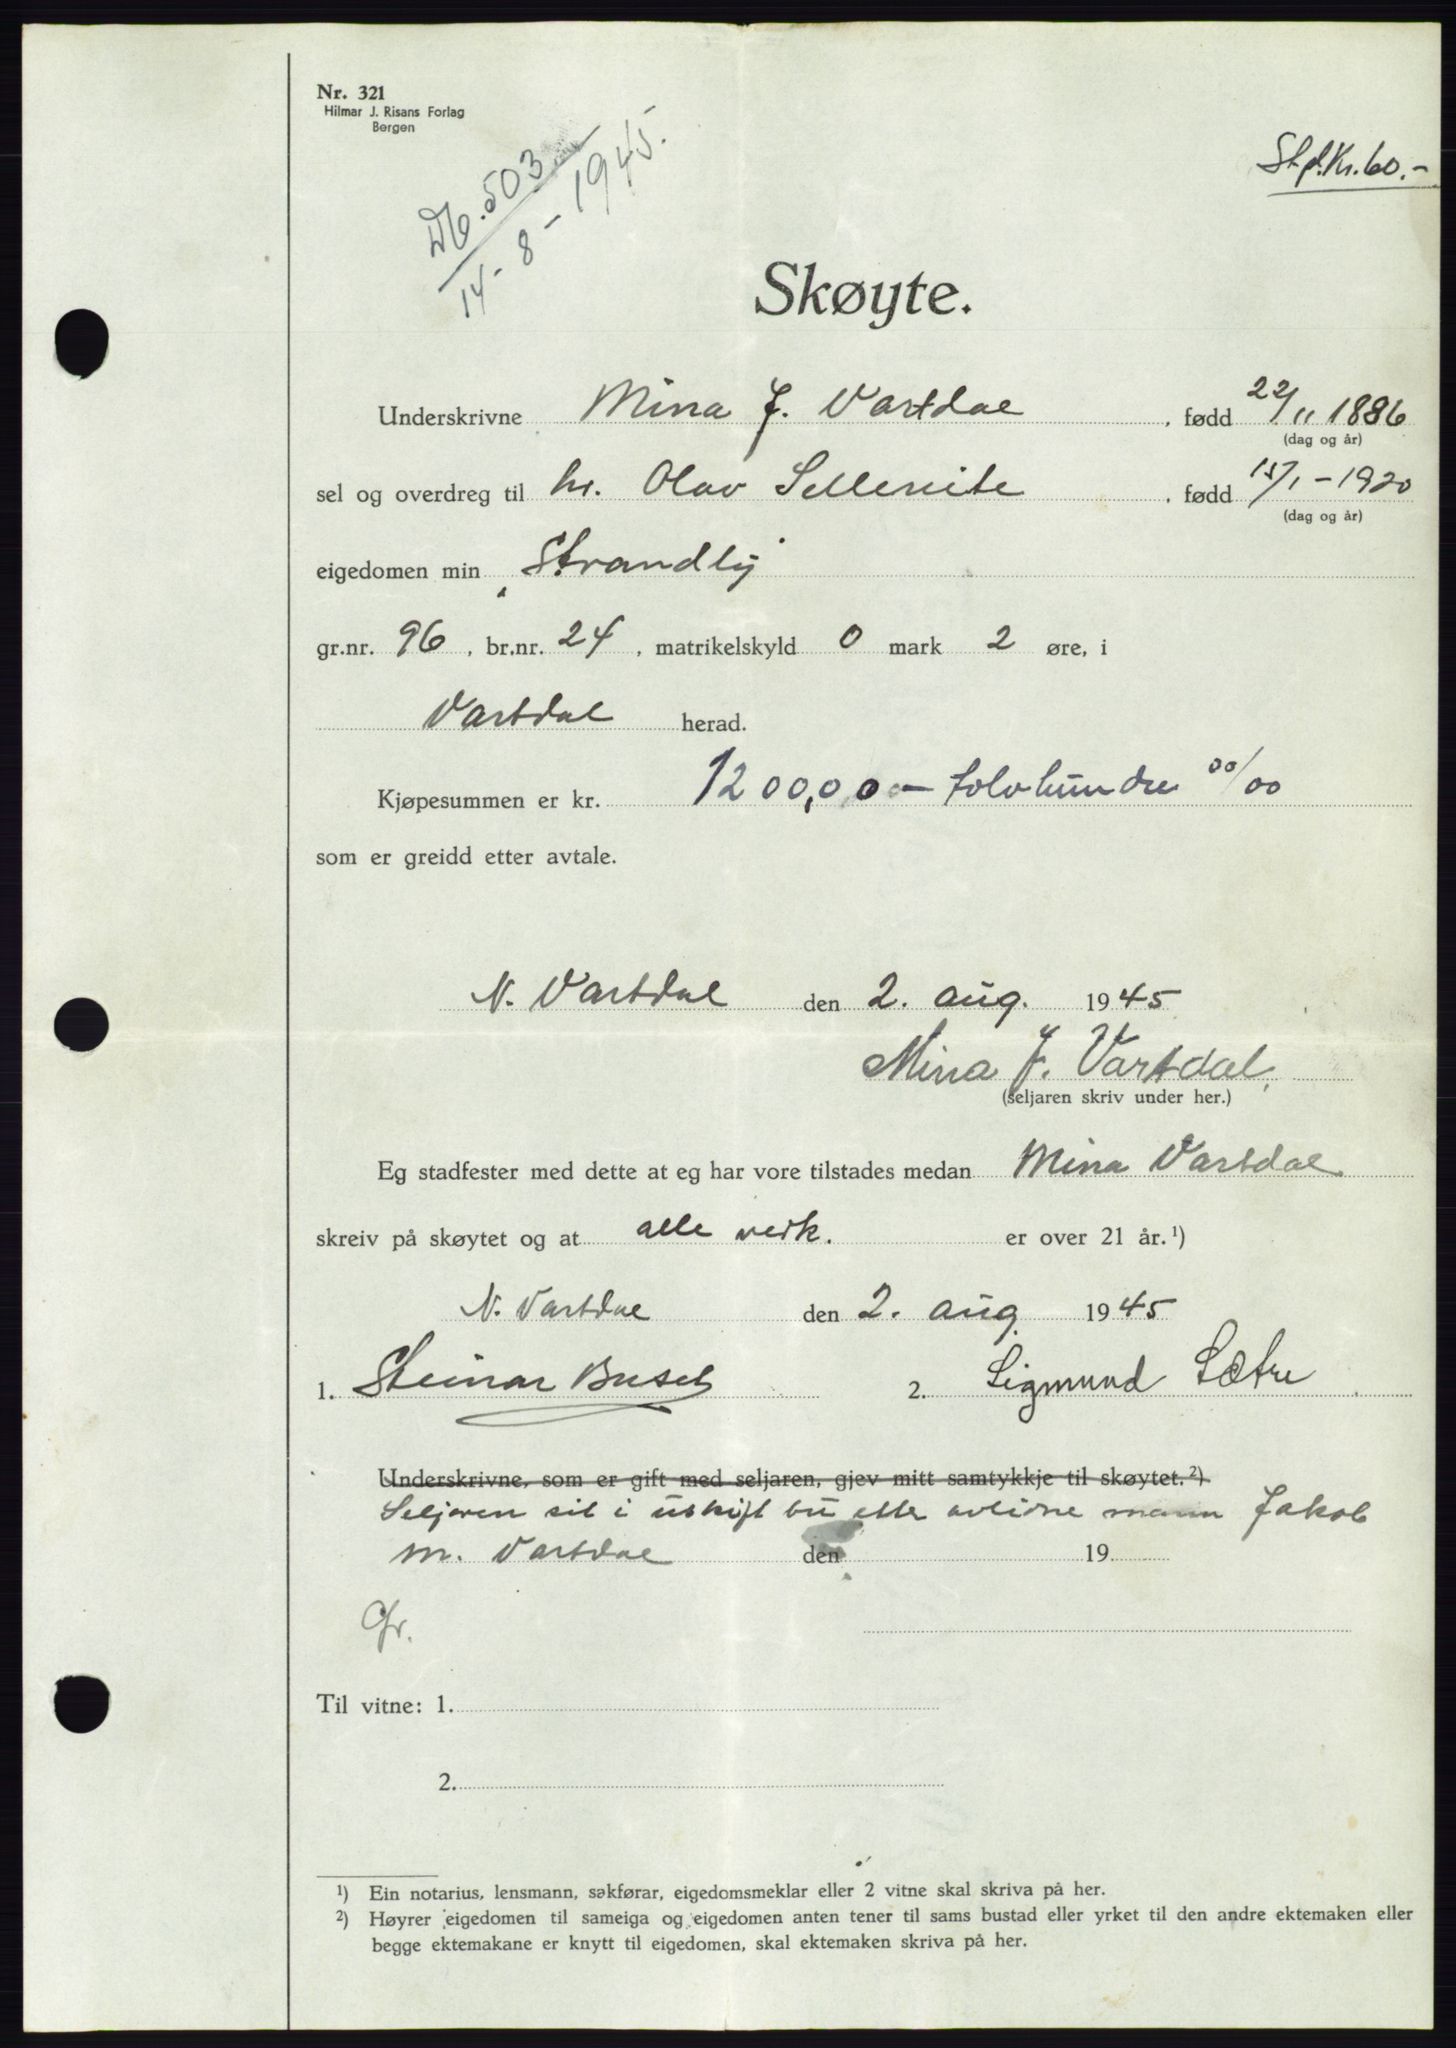 Nr. 321
Hilmar J. Risans Forlag
Bergen
Db. 503
14-8-1945.
St.p.Kr.60.-
Skøyte.
Underskrivne Mina J. Vartdal, fødd 22/11 1886
(dag og år)
sel og overdreg til hr. Olav Sellereite, fødd 15/1-1920
(dag og år)
eigedomen min "Strandly"
gr.nr. 96, br.nr. 24, matrikelskyld 0 mark 2 øre, i
Vartdal herad.
Kjøpesummen er kr. 1200,00 - tolvhundre 00/00
som er greidd etter avtale.
N. Vartdal den 2. aug. 1945
Mina J. Vartdal.
(seljaren skriv under her.)
Eg stadfester med dette at eg har vore tilstades medan Mina Vartdal
skreiv på skøytet og at alle vedk. er over 21 år.¹)
N. Vartdal den 2. aug 1945
1. Steinar Busch 2. Sigmund Sætre
Underskrivne, som er gift med seljaren, gjev mitt samtykkje til skøytet.²)
Seljaren sit i uskift bu etter avlidne mann Jakob
M. Vartdal den 19
Gr.
Til vitne: 1.
2.
¹) Ein notarius, lensmann, sakførar, eigedomsmeklar eller 2 vitne skal skriva på her.
²) Høyrer eigedomen til sameiga og eigedomen anten tener til sams bustad eller yrket til den andre ektemaken eller
begge ektemakane er knytt til eigedomen, skal ektemaken skriva på her.